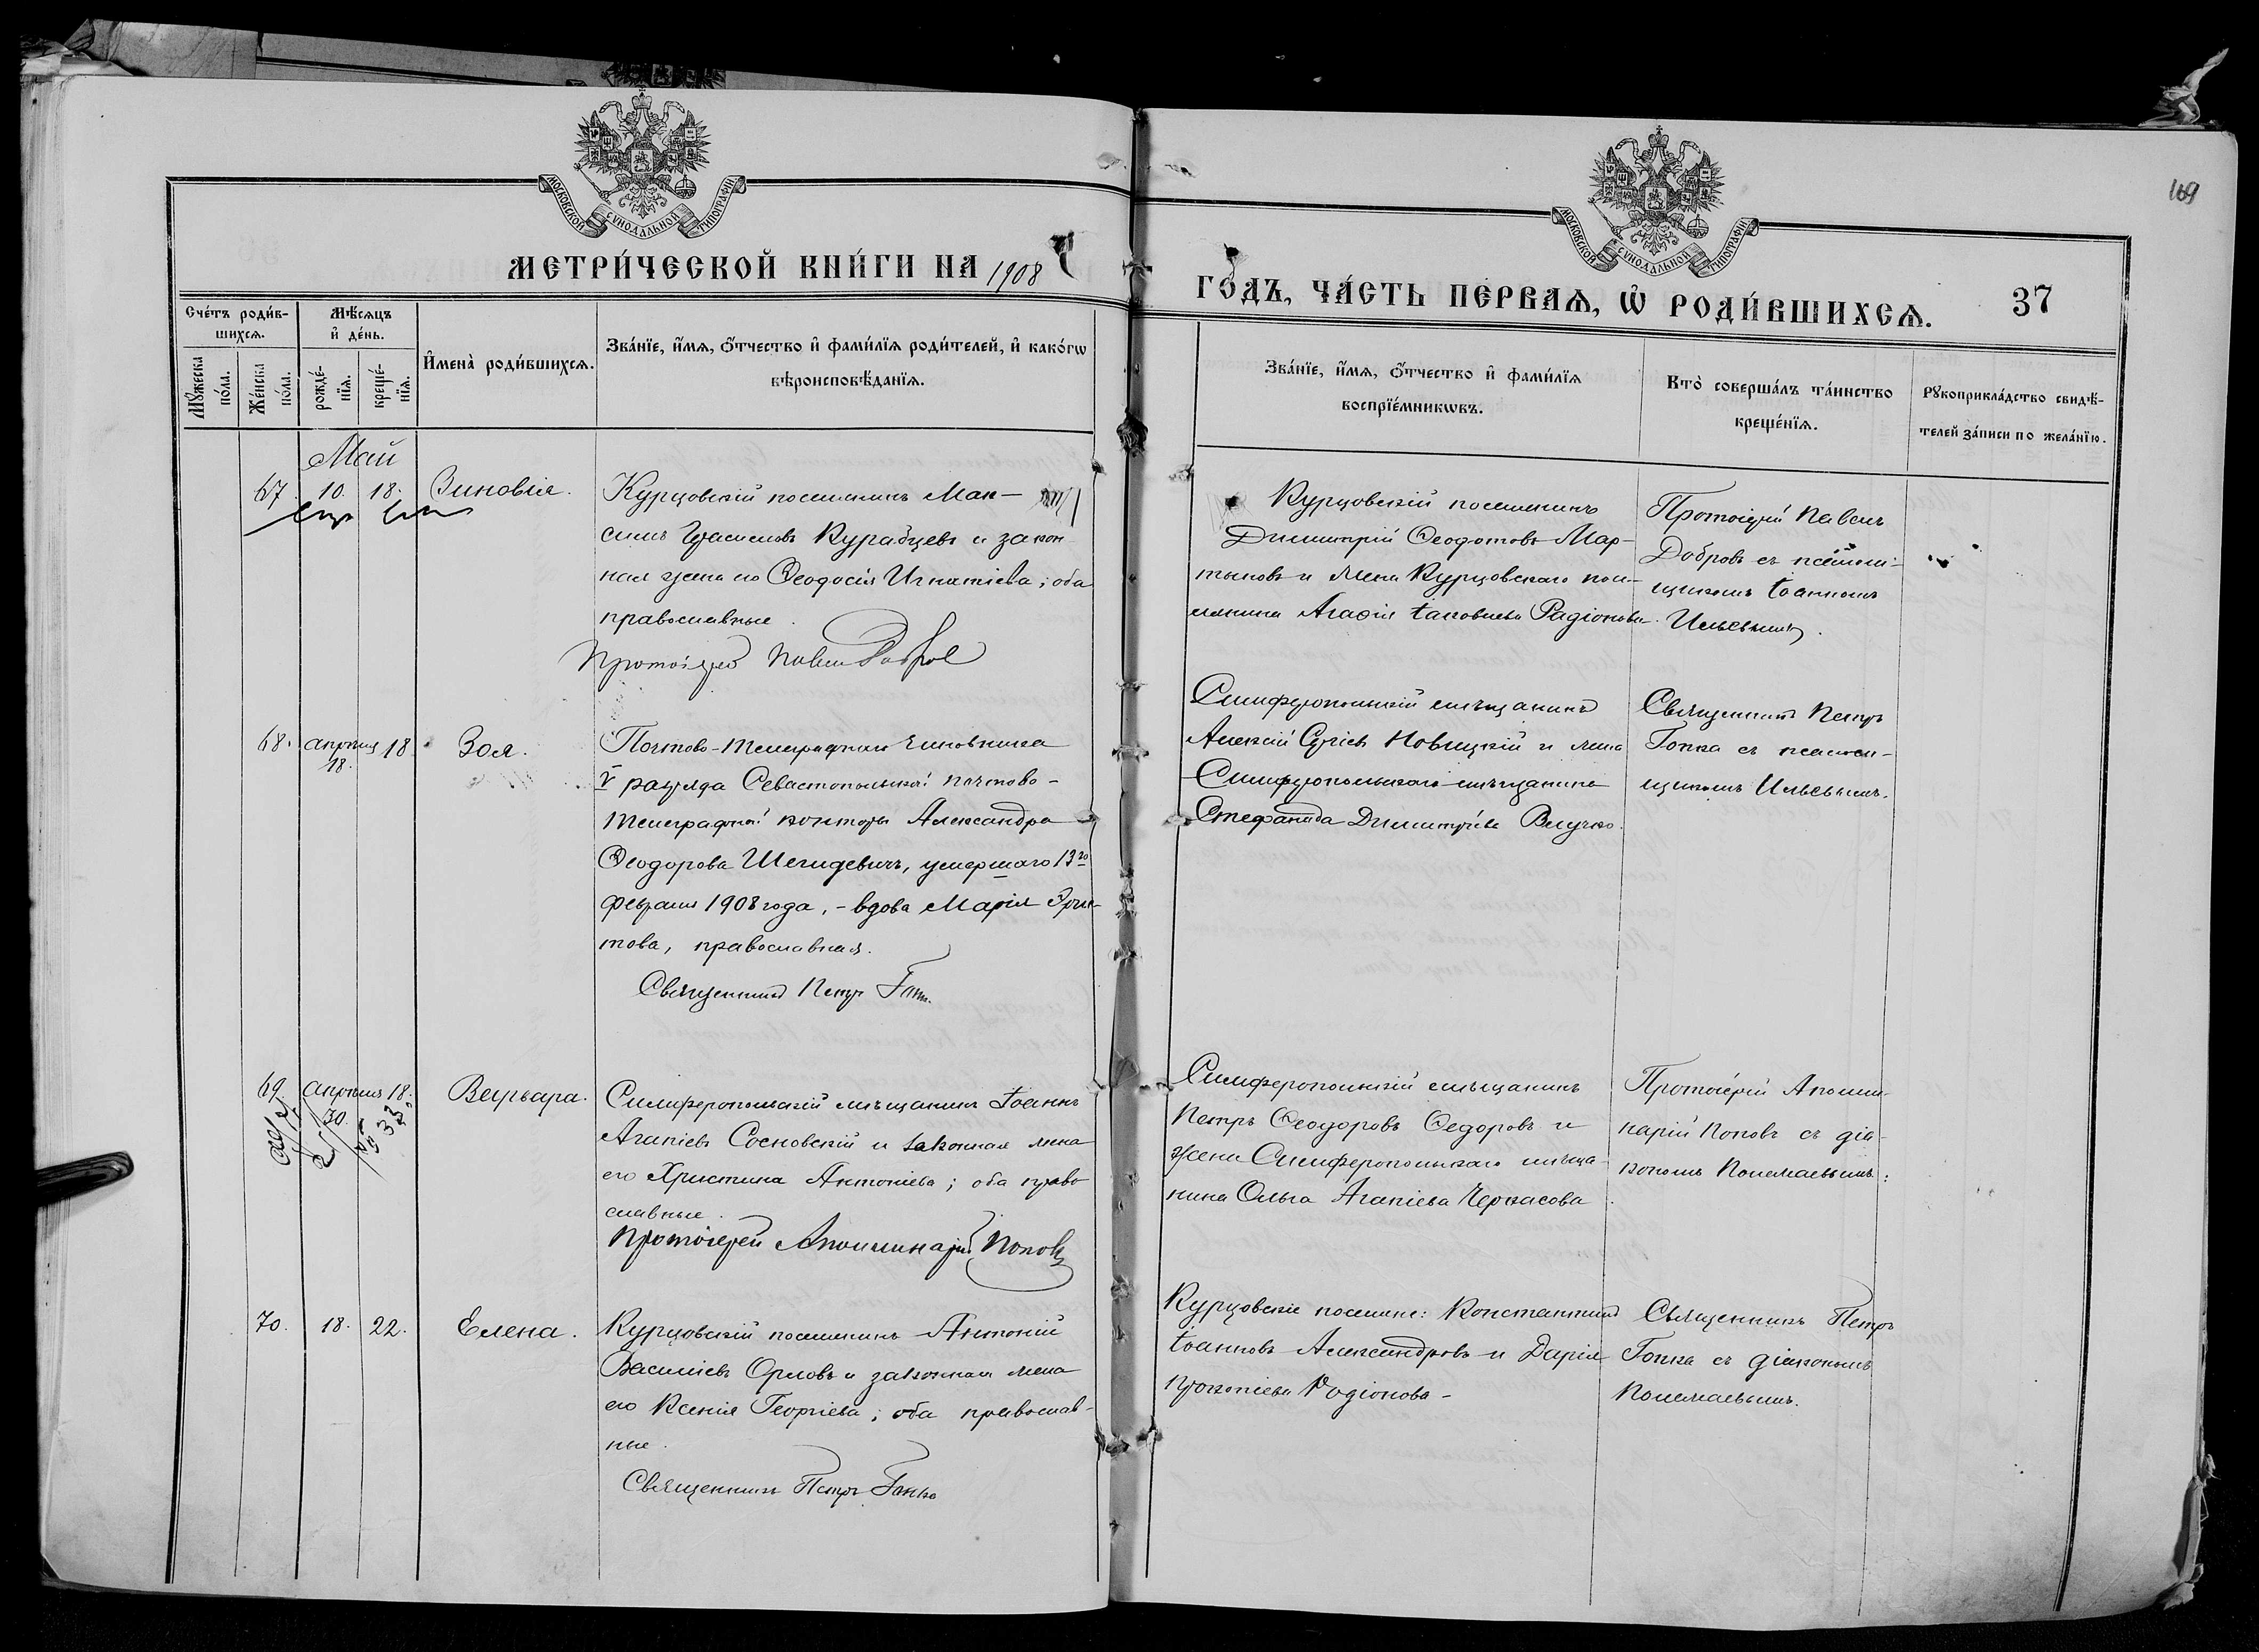 169
МОСКОВСКОЙ СѴНОДАЛЬНОЙ ТИПОГРАФІИ
МОСКОВСКОЙ СѴНОДАЛЬНОЙ ТИПОГРАФІИ
МЕТРИ́ЧЕСКОЙ КНИ́ГИ НА 1908
ГО́ДЪ, ЧА́СТЬ ПЕ́РВАѦ, Ѡ҆ РОДИ́ВШИХСѦ.
37
Сче́тъ роди́в-
шихсѧ.
Мꙋ́жеска
по́ла.
Же́нска
по́ла.
Мѣ́сѧцъ
и҆ де́нь.
рожде́-
нїѧ.
креще́-
нїѧ.
И҆мена̀ роди́вшихсѧ.
Зва́нїе, и҆́мѧ, ѻ҆́тчество и҆ фами́лїѧ роди́телей, и҆ како́гѡ
вѣроисповѣ́данїѧ.
Зва́нїе, и҆́мѧ, ѻ҆́тчество и҆ фами́лїѧ
воспрїе́мникѡвъ.
Кто̀ соверша́лъ та́инство
креще́нїѧ.
Рꙋкоприкла́дство свидѣ́-
телей за́писи по жела́нїю.
Май
67. 10. 18. Зиновія.
Курцовскій поселянинъ Мак-
симъ Курабцевъ и закон
ная жена его Ѳеодосія Игнатіева; оба
православные.
Протоіерей Павелъ Добров
Курцовскій поселянинъ
Димитрій Ѳеодотовъ Мар-
тыновъ и жена Курцовскаго посе-
лянина Агаѳія Іаковлева Радіонова.
Протоіерей Павелъ
Добровъ съ псаломщ-
щикомъ Іоанномъ
Ильевымъ.
68. апрѣля 18. 18. Зоя.
Почтово-телеграфнаго чиновника
V разряда Севастопольской почтово-
телеграфной конторы Александра
Ѳеодорова Шегидевичъ, умершаго 13го
февраля 1908 года, - вдова Марія
това, православная.
Священникъ Петръ Гопка
Симферопольскій мѣщанинъ
Алексій Новицкій и жена
Симферопольскаго мѣщанина
Стефанида Димитріева
Священникъ Петръ
Гопка съ псалом-
щикомъ Ильевымъ.
69. апрѣля 30. 18. Варвара.
Симферопольскій мѣщанинъ Іоаннъ
Агапіевъ Сосновскій и законная жена
его Христина Антоніева; оба право
славные.
Протоіерей Аполлинарій Поповъ
Симферопольскій мѣщанинъ
Петръ Ѳеодоровъ Ѳедоровъ и
жена Симферопольскаго мѣща-
нина Ольга Агапіева Черкасова.
Протоіерей Аполли-
нарій Поповъ съ діа-
кономъ
70. 18. 22. Елена.
Курцовскій поселянинъ Антоній
Василіевъ Орловъ и законная жена
его Ксенія Георгіева; оба православ-
ные.
Священникъ Петръ Гопка
Курцовскіе поселяне: Константинъ
Іоанновъ Александровъ и Дарія
Прокопіева Родіонова -
Священникъ Петръ
Гопка съ діакономъ